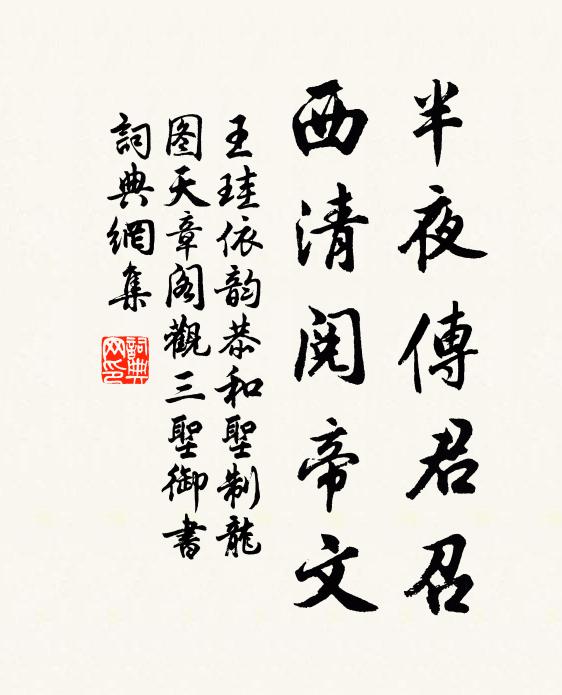 半夜傳君召
西清閱帝文
王珪依韵恭和聖制龍
图天章阁觀三聖御書
詞典網集
詞典网印